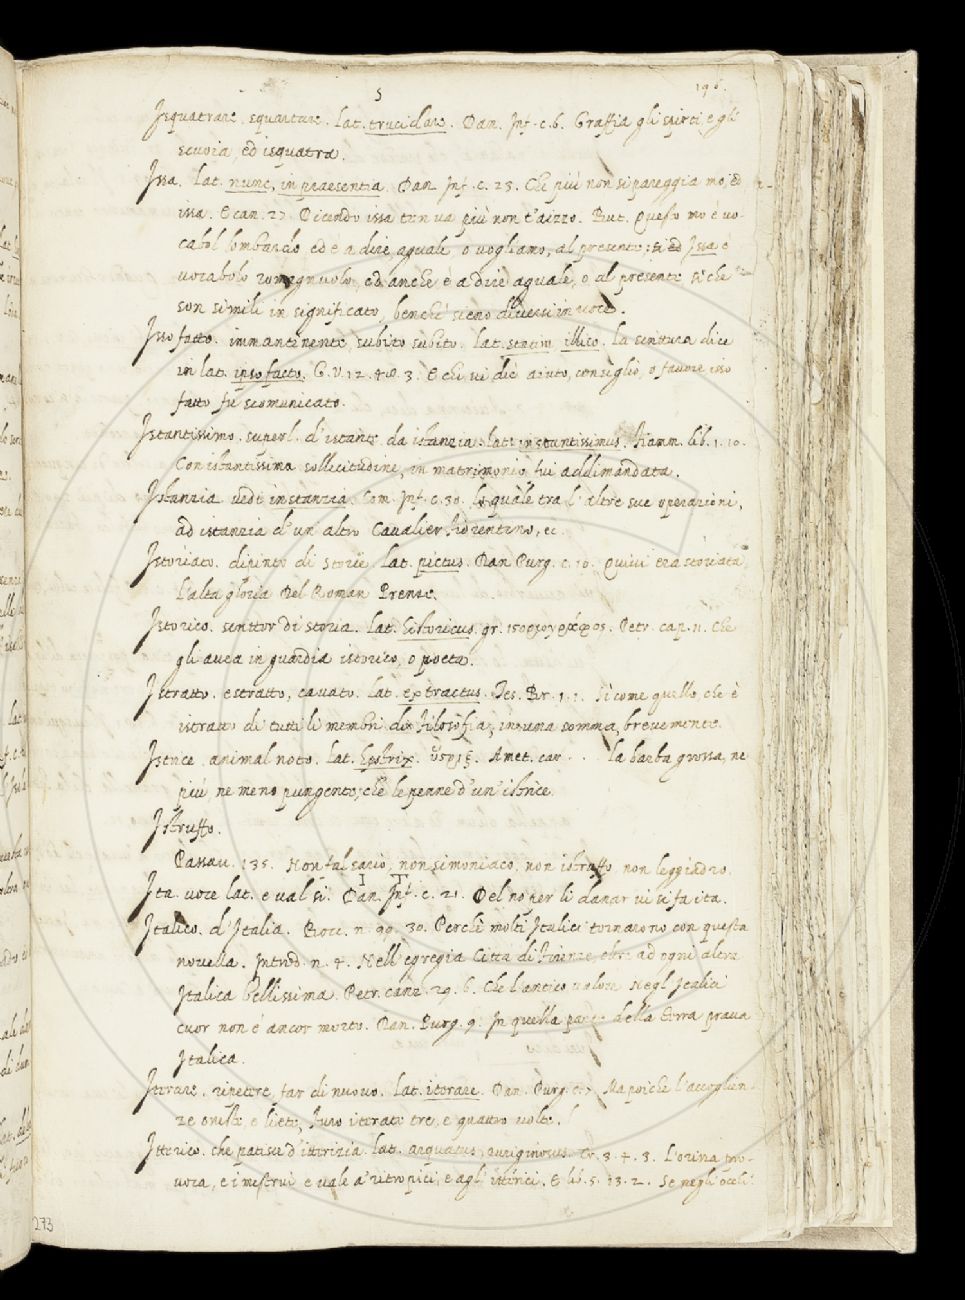 5
196.
Isquatrare. squartare. Lat. trucidare. Dan. Inf. c. 6. Graffia gli spirti, e gli
scuoia, ed isquatra.
Issa. Lat. nunc, in praesentia. Dan. Inf. c. 23. Che più non si pareggia mo, ed
issa. E can. 27. Dicendo issa ten va più non t'aizzo. But. Questo mo è vo-
cabol lombardo ed è a dire aguale, o vogliamo, al presente: ed Issa è
vocabolo romagnuolo, ed anche è a dire aguale, o al presente si che
son simili in significato, benchè sieno diversi in voce.
Issofatto. immantinente, subito subito. Lat. statim illico. La scrittura dice
in lat. ipso facto. G. V. 12. 3. E chi vi die aiuto, consiglio, o favore isso
fatto fu scomunicato.
Istantissimo. superl. d'istante da istanzia. lat. instantissimus. Fiamm. lib. 1. 10.
Con istantissima sollecitudine, in matrimonio fui addimandata.
Istanzia vedi instanzia. Com. Inf. c. 30. La quale tra l'altre sue operazioni,
ad istanzia d'un altro Cavalier fiorentino, ec.
Istoriato. dipinto di storie. Lat. pictus. Dan Purg. c. 10. Quivi era storiata
L'alta gloria Del Roman Prenze.
Istorico. scrittor di storia. Lat. historicus. gr. ἱστοριογράφος. Petr. cap. 11. Che
gli avea in guardia istorico, o poeta.
Istratto. estratto, cavato. Lat. extractus. Tes. Br. 1. 1. Si come quello che è
istratto di tutti li membri di filosofia, in una somma, brevemente.
Istrice. animal noto. Lat. Hystrix. ὕστριξ. Amet. car . . . La barba grossa, ne
più ne meno pungente, che le penne d'un'istrice.
Istruffo.
Passav. 135. Non falsario, non simoniaco, non istruffo non leggiadro.
I T
Ita. voce lat. e val si. Dan. Inf. c. 21. Del no per li danar vi si fa ita.
Italico. d'Italia. Bocc. n. 99. 30. Perchè molti Italici tornarono con questa
novella. Introd. n. 4. Nell'egregia Citta di Firenze oltre ad ogni altra
Italica bellissima. Petr. canz. 29. 6. Che l'antico valore Negl'Italici
cuor non è ancor morto. Dan. Purg. 9. In quella parte della terra prava
Italica.
Iterare. ripetere, far di nuovo. Lat. iterare. Dan. Purg. c. 7. Ma poichè l'accoglien-
ze oneste, e liete, Furo iterate tre, e quattro volte.
Itterico. che patisce d'itterizia. Lat. arquatus, auriginosus. Cr. 3. 4. 3. L'orina pro-
voca, e i mestrui e vale a' ritropici, e agl' itterici. E lib. 5. 13. 2. Se negli occhi
273